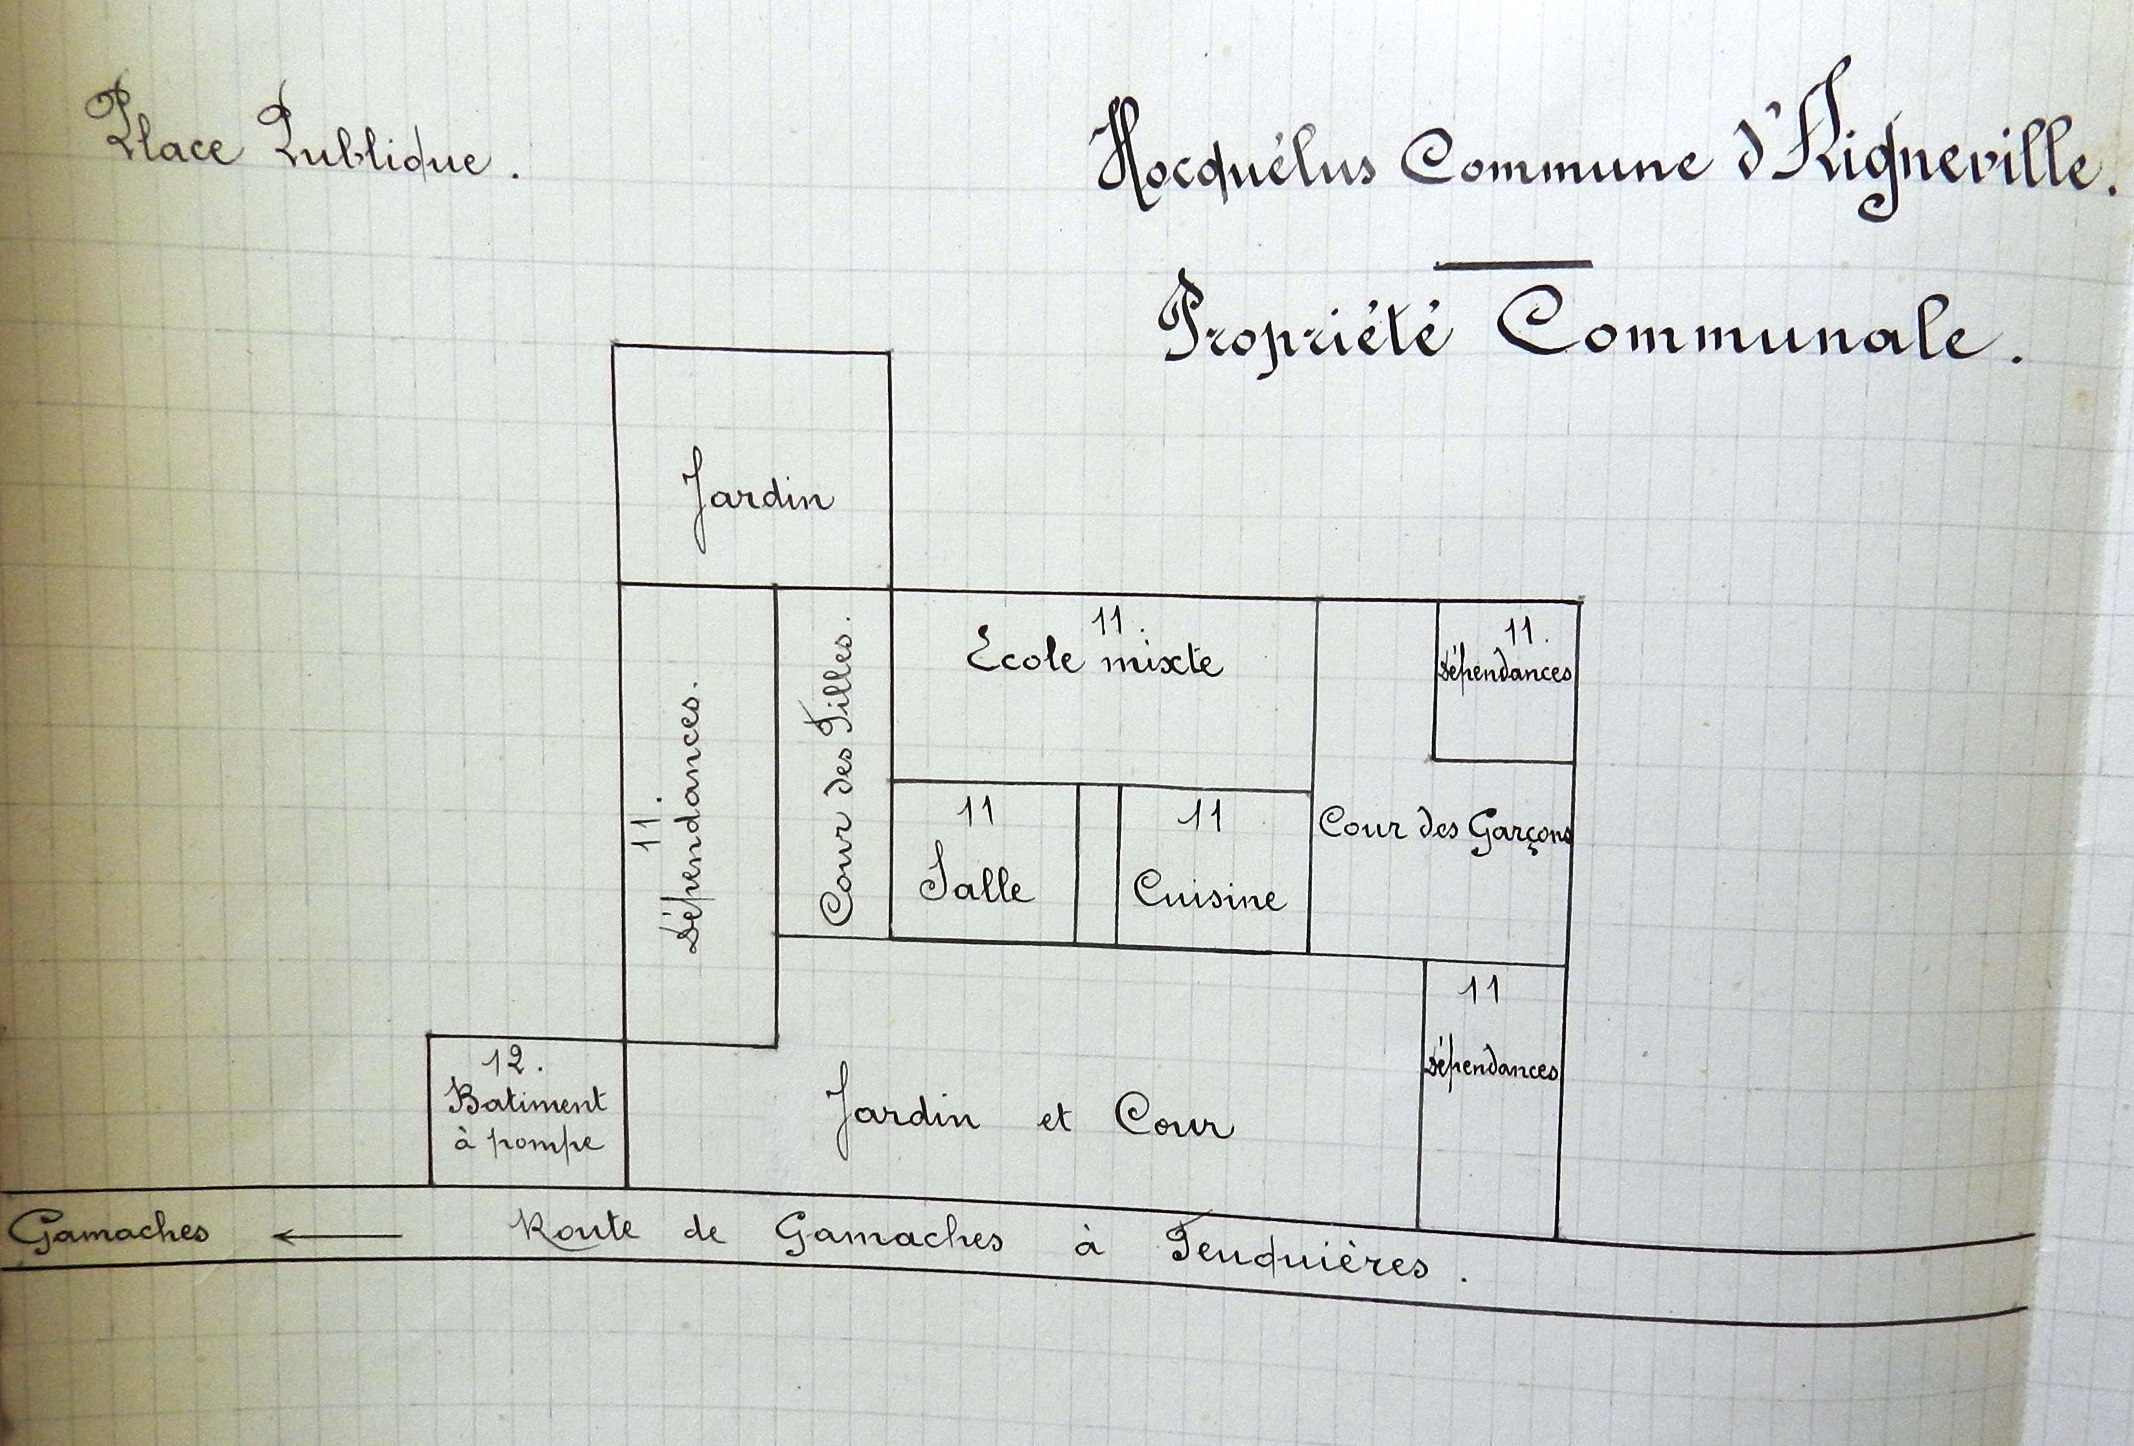 Place Publique.
Hocquélus Commune d'Aigneville.
Propriété Communale.
Jardin
11.
Dépendances.
Cour des Filles.
11.
Ecole mixte
11.
Dépendances
11
Salle
11
Cuisine
Cour des Garçons
11
Dépendances
12.
Batiment
à pompe
Jardin et Cour
Gamaches
Route de Gamaches à Feuquières.